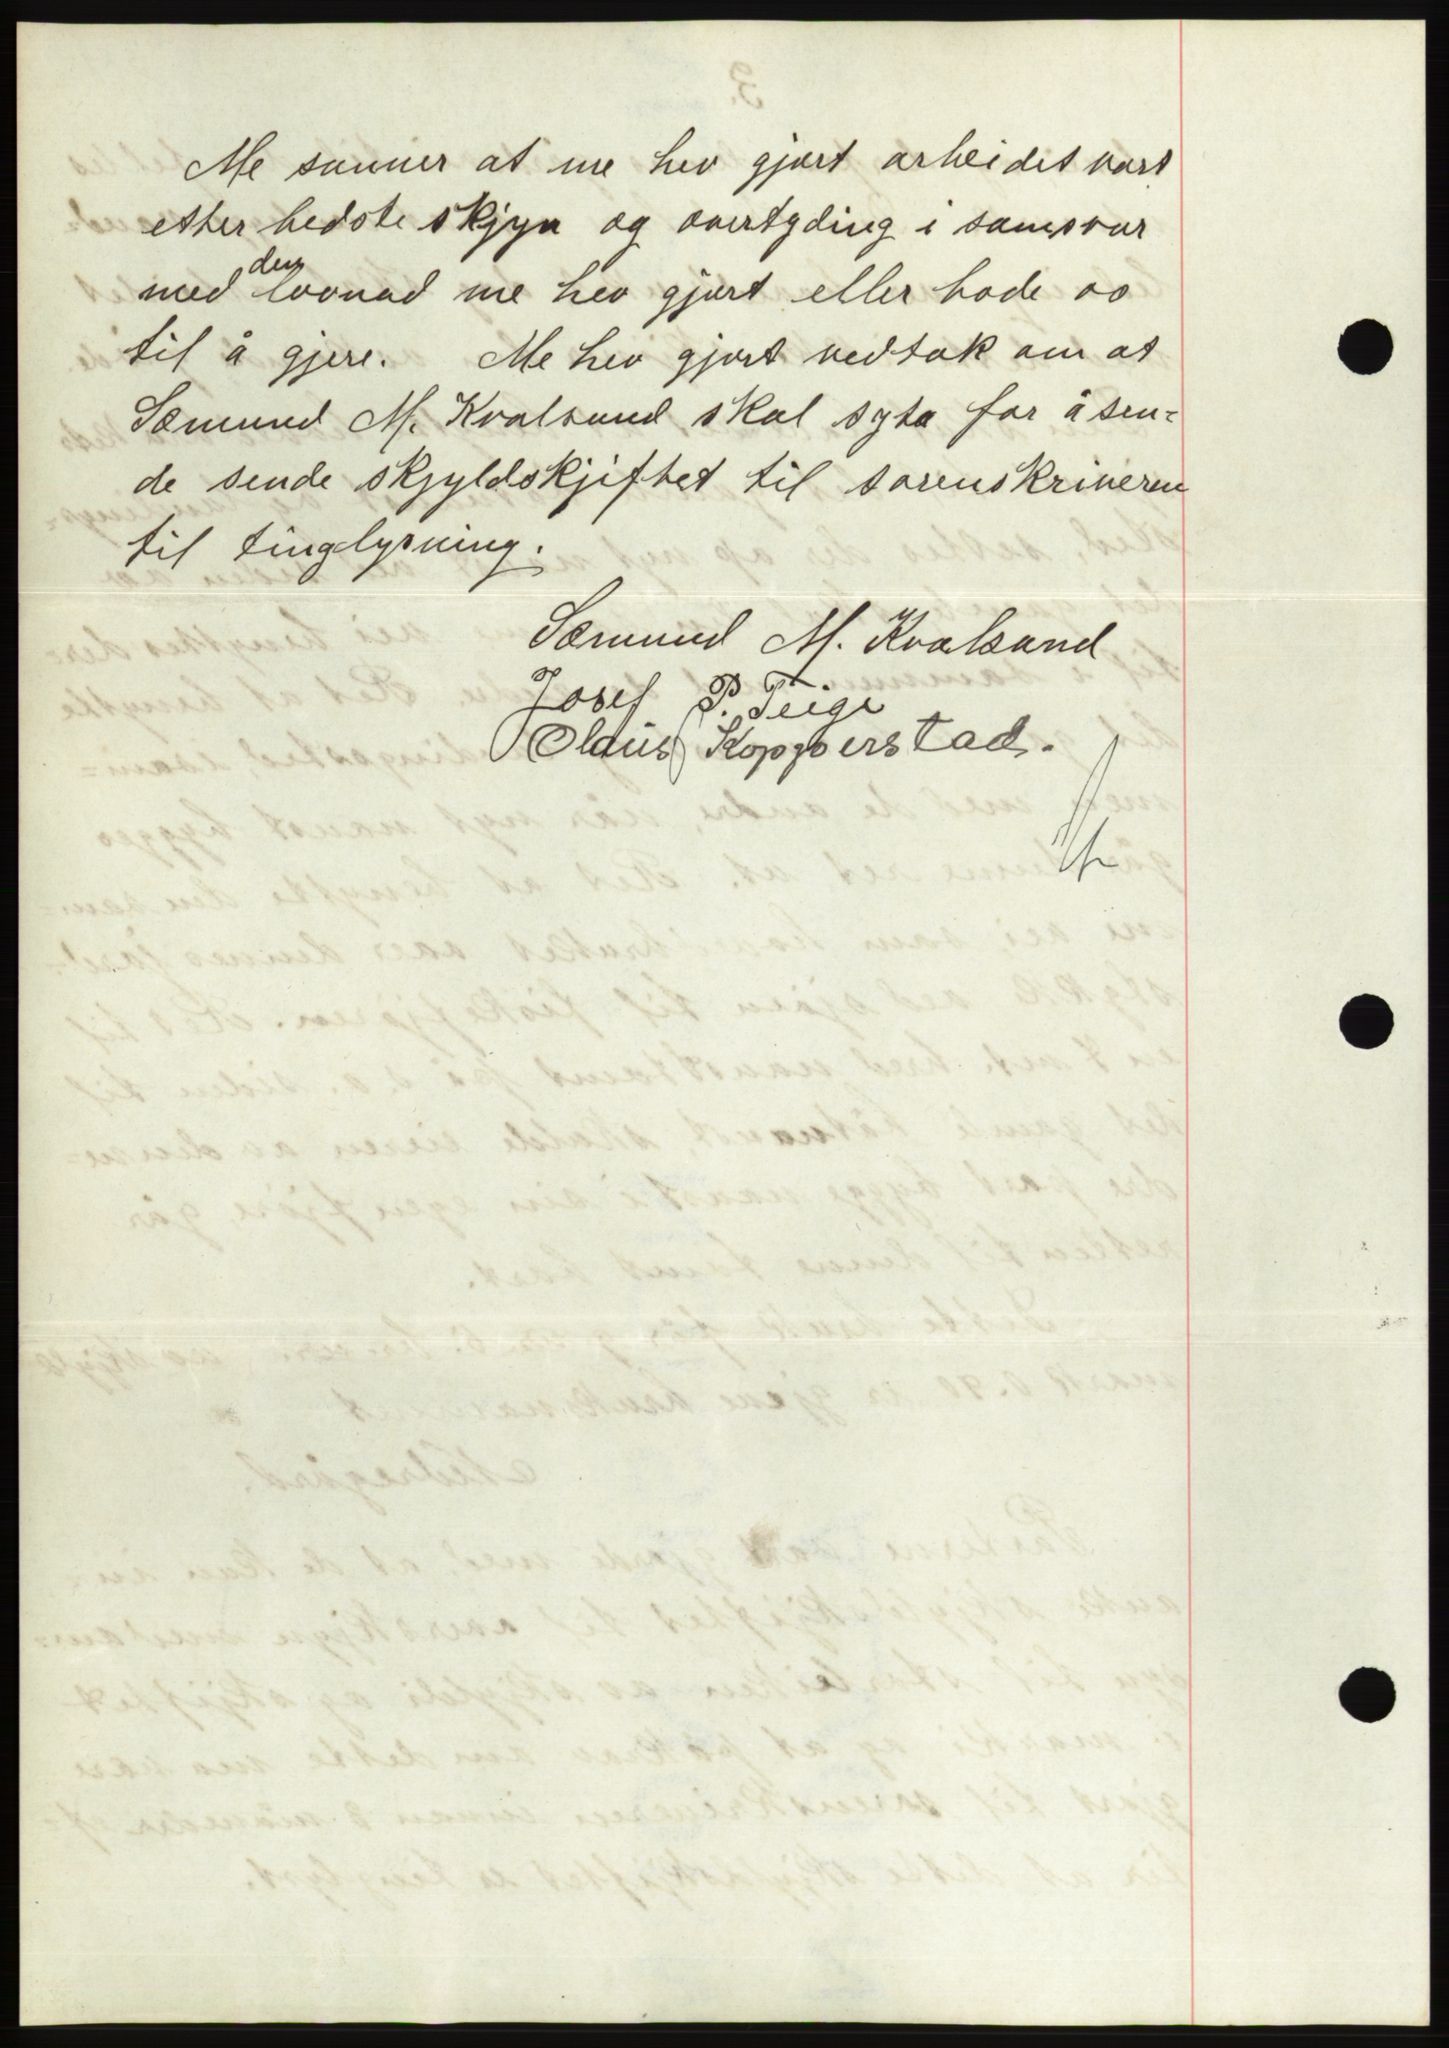 Me sanner at me hev gjort arbeidet vort
etter bedste skjyn og overtyding i samsvar
med den lovnad me hev gjort eller bode oo
til å gjere. Me hev gjort vedtak om at
Sæmund M. Kvalsund skal syta for å sen=
de sende skjyldskjiftet til sorenskriveren
til tinglysning.
Sæmund M. Kvalsund
Josef P. Teige
Olaus Kopperstad.